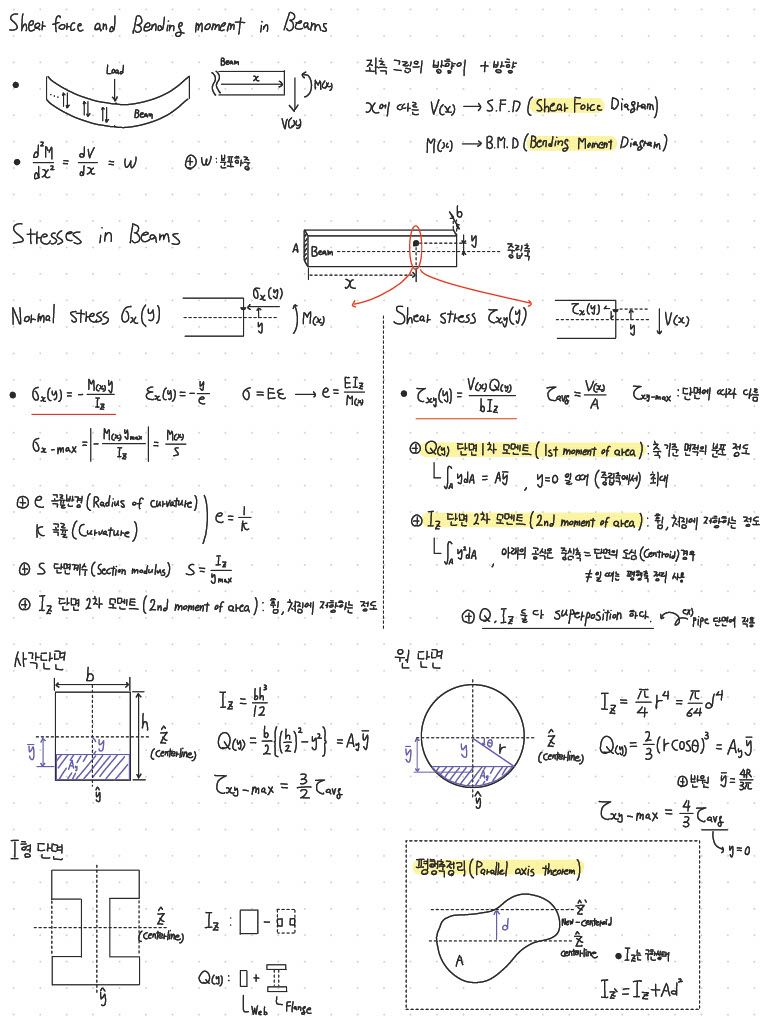 Shear force and Bending moment in Beams
Load
Beam
Beam
x
M(x)
V(x)
좌측 그림의 방향이 + 방향
x에 따른 V(x) → S.F.D (Shear Force Diagram)
M(x) → B.M.D (Bending Moment Diagram)
• d²M/dx² = dV/dx = w ⊕ w : 분포하중
Stresses in Beams
A
Beam
b
y
중립축
x
Normal stress σx(y)
σx(y)
y
M(x)
Shear stress τxy(y)
τx(y)
y
V(x)
• σx(y) = - M(x)y/Iz εx(y) = - y/e σ = Eε → e = EIz/M(x)
σx-max = |- M(x)ymax/Iz| = M(x)/S
⊕ e 곡률반경 (Radius of curvature)
K 곡률 (Curvature)
e = 1/K
⊕ S 단면계수 (Section modulus) S = Iz/ymax
⊕ Iz 단면 2차 모멘트 (2nd moment of area) : 힘, 처짐에 저항하는 정도
• τxy(y) = V(x)Q(y)/bIz τavg = V(x)/A τxy-max : 단면에 따라 다름
⊕ Q(y) 단면 1차 모멘트 (1st moment of area) : 축 기준 면적의 분포 정도
∫A ydA = Aȳ , y=0 일 때 (중립축에서) 최대
⊕ Iz 단면 2차 모멘트 (2nd moment of area) : 힘, 처짐에 저항하는 정도
∫A y²dA , 아래의 공식은 중심축 = 단면의 도심 (Centroid) 경우
≠ 일 때는 평행축 정리 사용
⊕ Q, Iz 둘 다 superposition 하다.
ex) Pipe 단면에 적용
사각단면
b
h
ȳ
y
Ay
ẑ
(centerline)
ŷ
Iz = bh³/12
Q(y) = b/2{(h/2)² - y²} = Ay ȳ
τxy-max = 3/2 τavg
원 단면
ȳ
y
θ
r
Ay
ẑ
(centerline)
ŷ
Iz = π/4 r⁴ = π/64 d⁴
Q(y) = 2/3 (r cosθ)³ = Ay ȳ
⊕ 반원 ȳ = 4R/3π
τxy-max = 4/3 τavg
y=0
I형 단면
ẑ
(centerline)
ŷ
Iz : -
Q(y) : +
Web
Flange
평행축정리 (Parallel axis theorem)
d
A
ẑ'
Non-centroid
ẑ
centerline
Iz' = Iz + Ad²